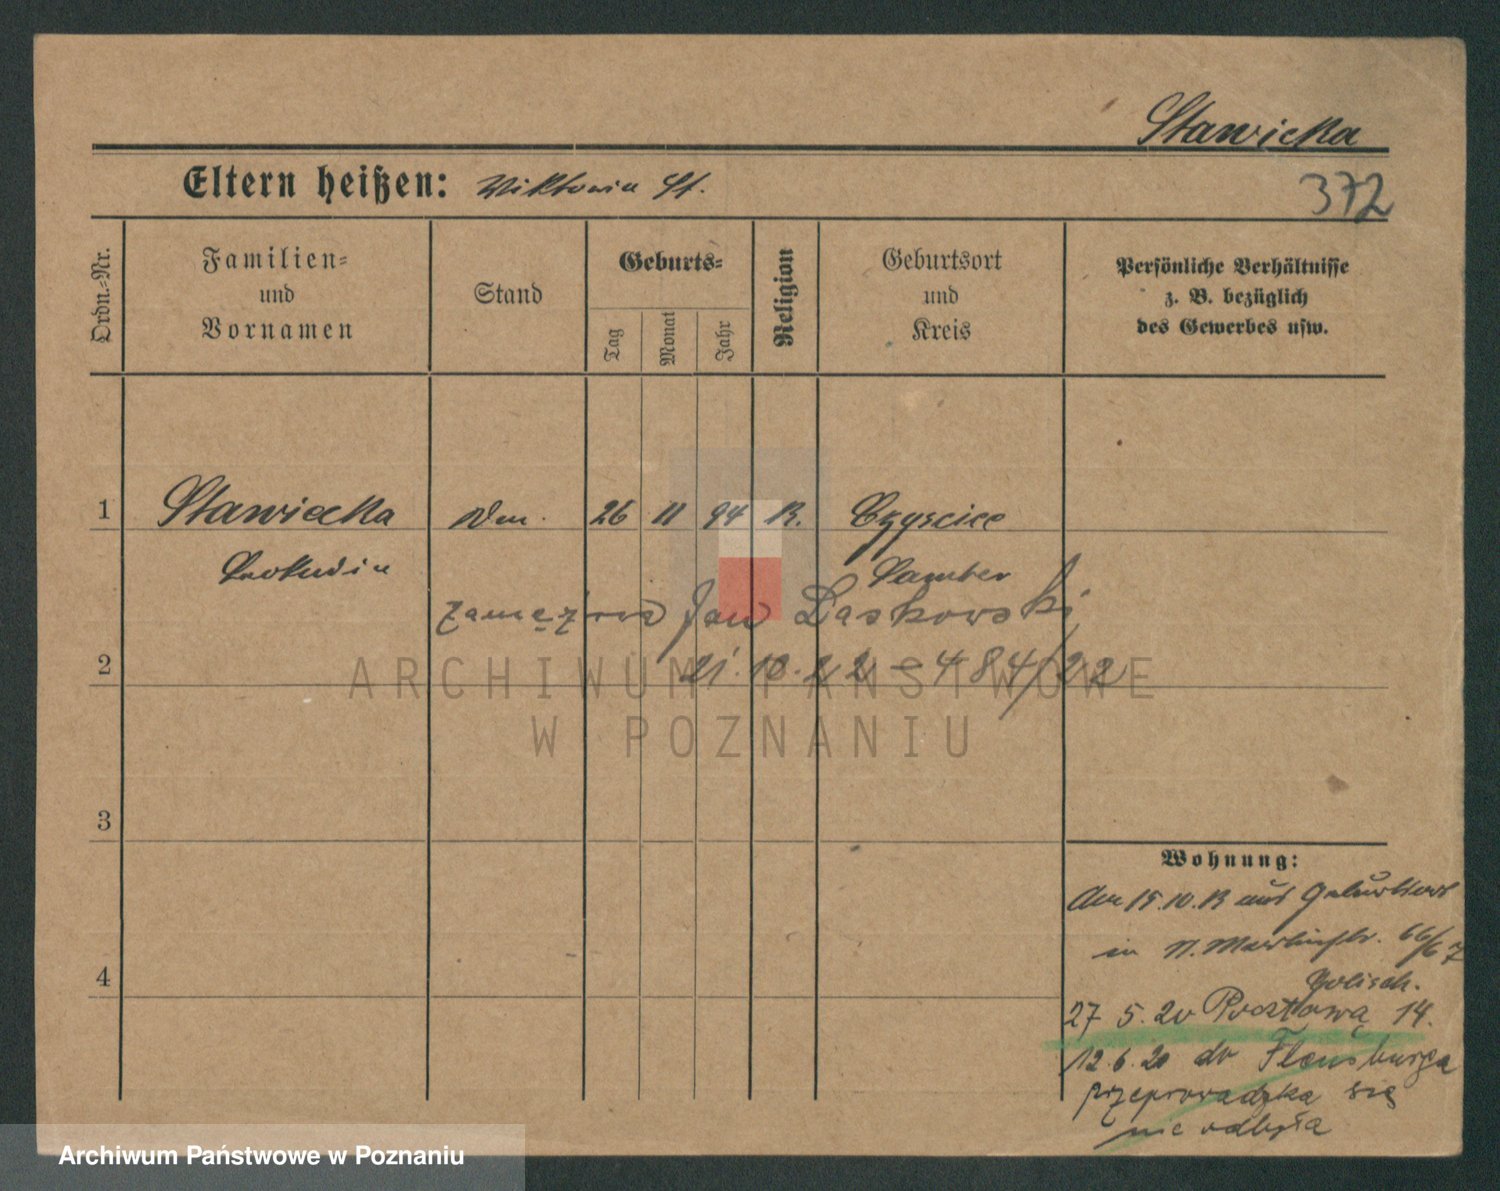 Stawicka
Eltern heißen: Wiktoria St.
372
Ordn.-Nr.
Familien-
und
Vornamen
Stand
Geburts-
Tag
Monat
Jahr
Religion
Geburtsort
und
Kreis
Persönliche Verhältnisse
z. B. bezüglich
des Gewerbes usw.
1 Stawiecka 26 11 94 R.
Samter
zamężna Jan Laskowski
21.10.22 – 484/22
2
ARCHIWUM PAŃSTWOWE
W POZNANIU
3
Wohnung:
Am 15.10.13 aus Geburtsort
in N. Martinstr. 66/67
4
27 5.20 Pocztowa 14.
12.6.20 do Flensburga
przeprowadzka się
nie odbyła
Archiwum Państwowe w Poznaniu